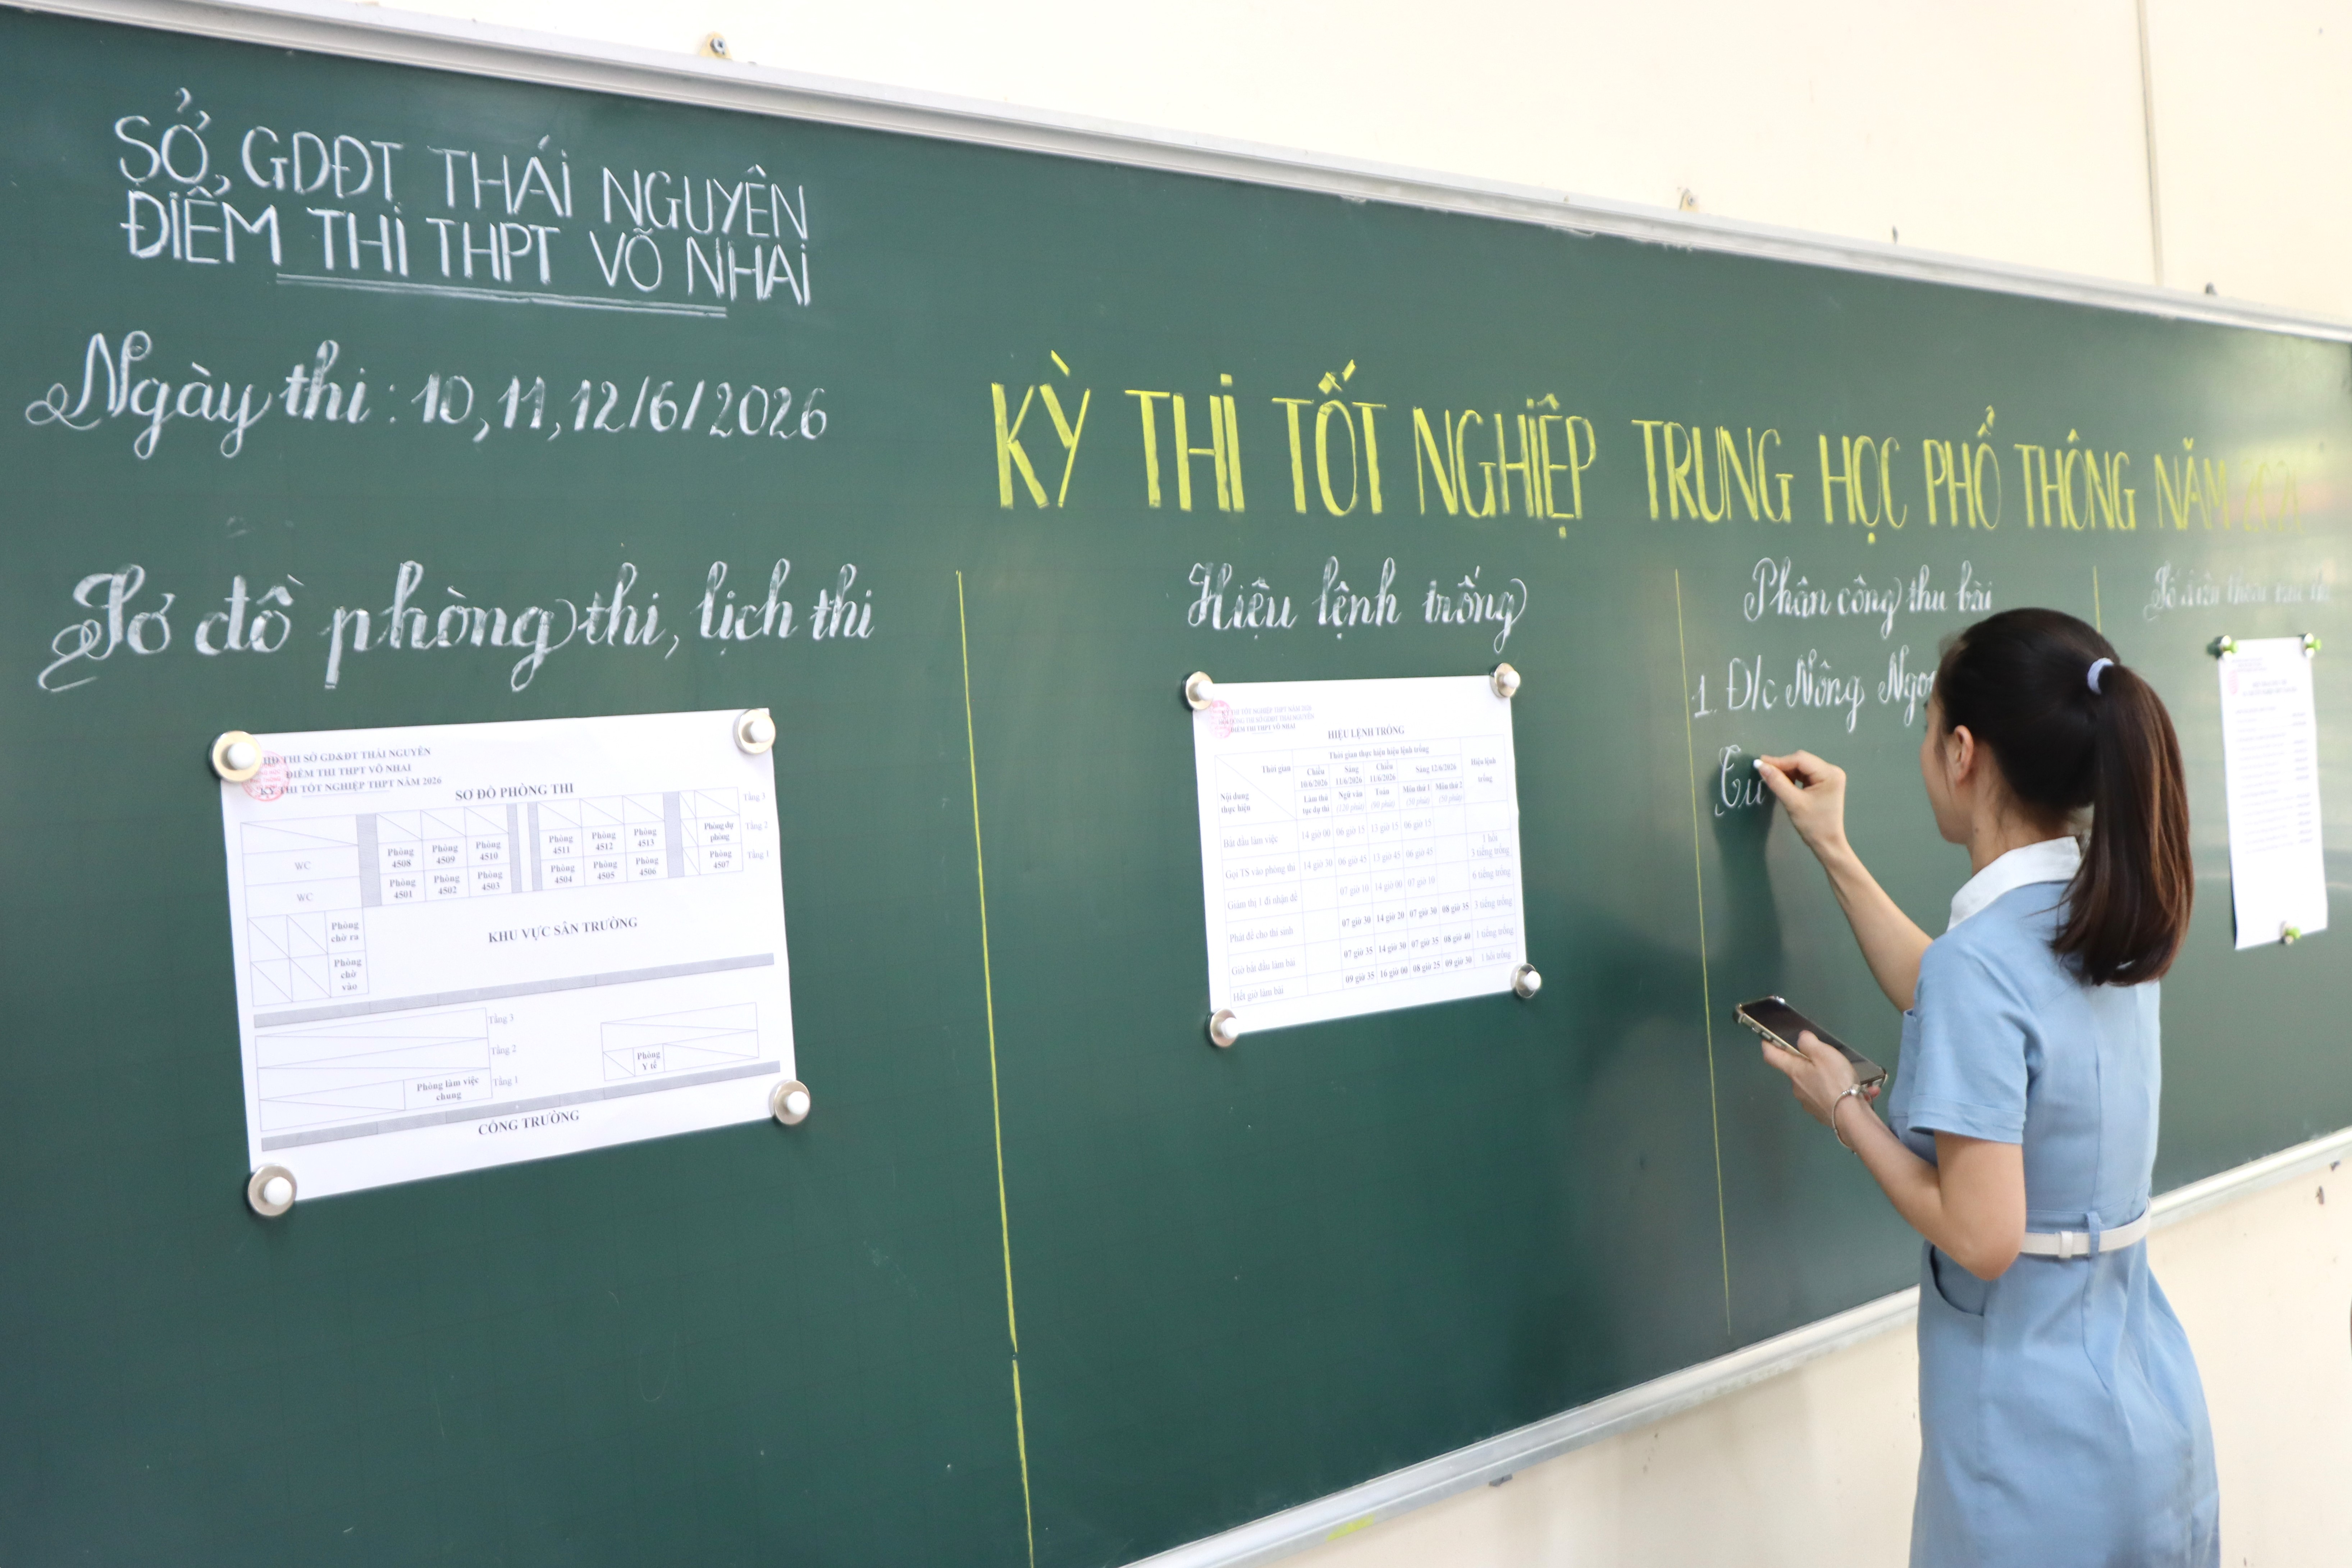 SỞ GDĐT THÁI NGUYÊN
ĐIỂM THI THPT VÕ NHAI
Ngày thi: 10, 11, 12/6/2026
KỲ THI TỐT NGHIỆP TRUNG HỌC PHỔ THÔNG NĂM
Sơ đồ phòng thi, lịch thi
Hiệu lệnh trống
Phân công thu bài
1. Đ/c Nông
THI SỞ GD&ĐT THÁI NGUYÊN
ĐIỂM THI THPT VÕ NHAI
KỲ THI TỐT NGHIỆP THPT NĂM 2026
SƠ ĐỒ PHÒNG THI
Tầng 3
WC Phòng 4508 Phòng 4509 Phòng 4510 Phòng 4511 Phòng 4512 Phòng 4513 Phòng dự phòng Tầng 2
WC Phòng 4501 Phòng 4502 Phòng 4503 Phòng 4504 Phòng 4505 Phòng 4506 Phòng 4507 Tầng 1
Phòng chờ ra
KHU VỰC SÂN TRƯỜNG
Phòng chờ vào
Tầng 3
Tầng 2
Phòng làm việc chung Tầng 1
Phòng Y tế
CỔNG TRƯỜNG
ĐIỂM THI THPT VÕ NHAI
HIỆU LỆNH TRỐNG
Thời gian Thời gian thực hiện hiệu lệnh trống Hiệu lệnh trống
Chiều 10/6/2026 Sáng 11/6/2026 Chiều 11/6/2026 Sáng 12/6/2026
Nội dung thực hiện Làm thủ tục dự thi Ngữ văn (120 phút) Toán (90 phút) Môn thứ 1 (50 phút) Môn thứ 2 (50 phút)
Bắt đầu làm việc 14 giờ 00 06 giờ 15 13 giờ 15 06 giờ 15 1 hồi
Gọi TS vào phòng thi 14 giờ 30 06 giờ 45 13 giờ 45 06 giờ 45 3 tiếng trống
Giám thị 1 đi nhận đề 07 giờ 10 14 giờ 00 07 giờ 10 6 tiếng trống
Phát đề cho thí sinh 07 giờ 30 14 giờ 20 07 giờ 30 08 giờ 35 3 tiếng trống
Giờ bắt đầu làm bài 07 giờ 35 14 giờ 30 07 giờ 35 08 giờ 40 1 tiếng trống
Hết giờ làm bài 09 giờ 35 16 giờ 00 08 giờ 25 09 giờ 30 1 hồi trống